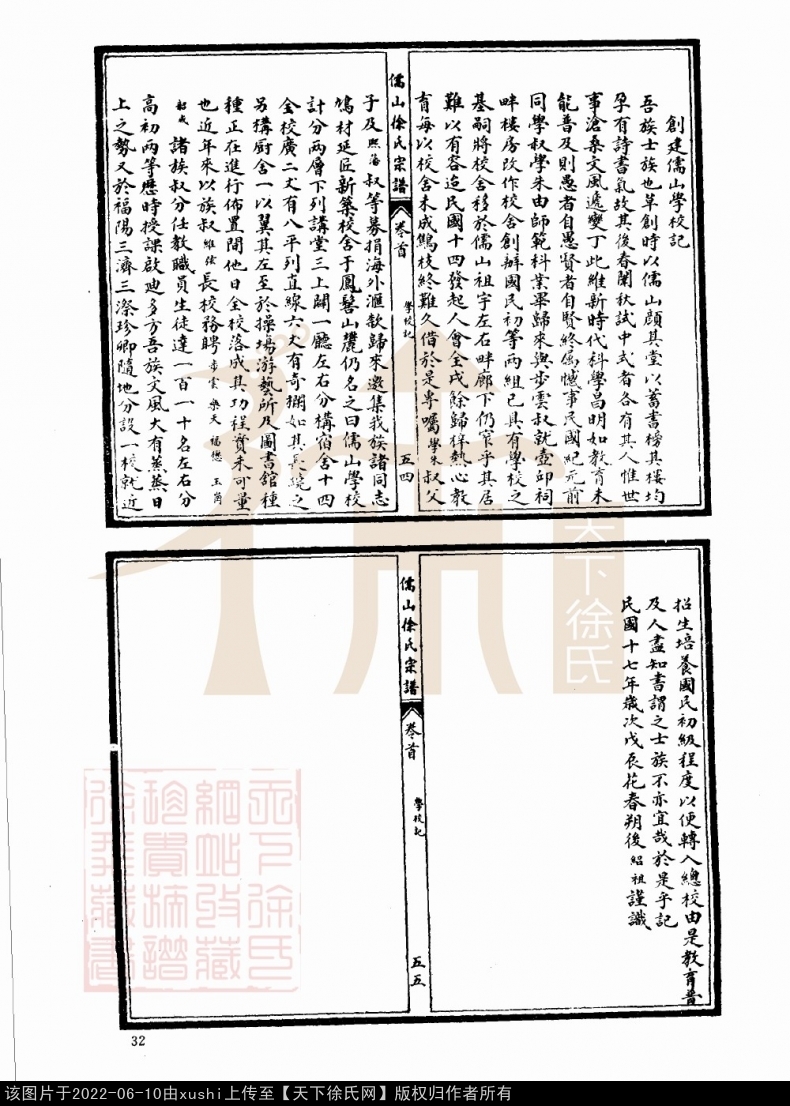 創建儒山學校記
吾族士族也草創時以儒山顏其堂以蓄書榜其樓均
孕有詩書氣故其後春闈秋試中式者各有其人惟世
事滄桑文風遞變丁此維新時代科學昌明如教育未
能普及則愚者自愚賢者自賢終屬憾事民國紀元前
同學叔學朱由師範科業畢歸來與步雲叔就壺邱祠
畔樓房改作校舍創辦國民初等兩組已具有學校之
基嗣將校舍移於儒山祖宇左右畔廊下仍官乎其居
難以有容迨民國十四發起人會全戌餘歸梓熱心教
育每以校舍未成鷦枝終難久借於是專囑學朱叔父
儒山徐氏宗譜
卷首
學校記
五四
子及熙藩叔等募捐海外滙欵歸來邀集我族諸同志
鳩材延匠新築校舍于鳳髻山麓仍名之曰儒山學校
計分兩層下列講堂三上闢一廳左右分構宿舍十四
全校廣二丈有八平列直線六丈有奇擱如其長繞之
另搆厨舍一以翼其左至於操場游藝所及圖書館種
種正在進行佈置間他日全校落成其功程實未可量
也近年來以族叔維絃長校務聘步雲 樂天 福懋 玉爾
起成諸族叔分任教職員生徒達一百一十名左右分
高初兩等應時授課啟迪多方吾族文風大有蒸蒸日
上之勢又於福陽三濟三漈珍卿隨地分設一校就近
招生培養國民初級程度以便轉入總校由是教育普
及人盡知書謂之士族不亦宜哉於是乎記
民國十七年歲次戊辰花春朔後紹祖謹識
儒山徐氏宗譜
卷首
學校記
五五
32
天下徐氏
天下徐氏
網站收藏
珍貴族譜
徐業藏書
该图片于2022-06-10由xushi上传至【天下徐氏网】版权归作者所有